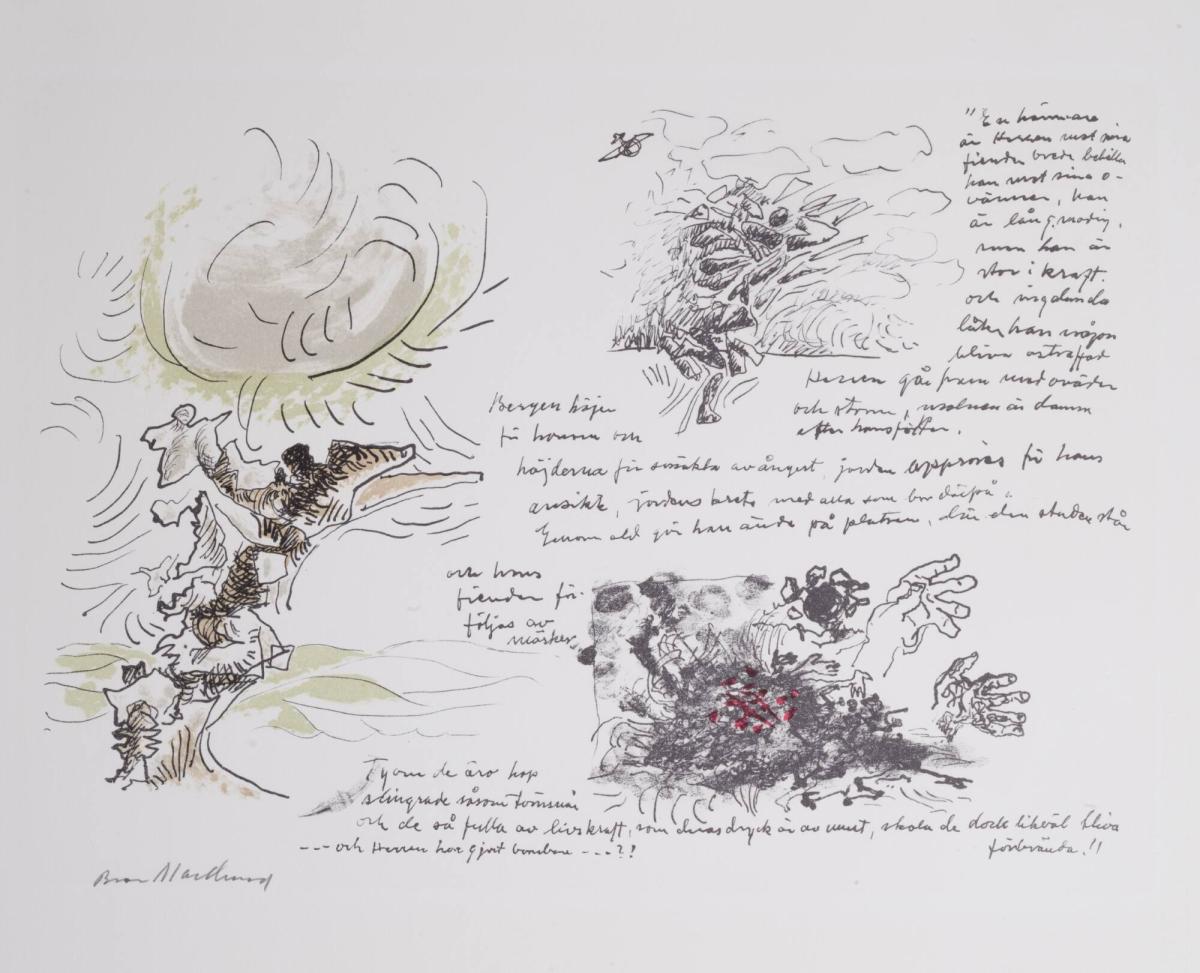 "En hämnare
är Herren mot sina
fiender vrede behåller
han mot sina o-
vänner, han
är långmodig,
men han är
stor i kraft.
och ingalunda
låter han någon
bliva ostraffad
Herren går fram med oväder
och storm, molnen är damm
efter hans fötter.
Bergen höja
för honom och
höjderna för smälta av ångest, jorden upprörs för hans
ansikte, jordens krets med alla som bor därpå.
Genom eld gör han ände på platsen, där den staden står
och hans
fiender för-
följas av
mörker.
Ty om de äro hop
slingrade såsom törnsnår
och de så fulla av livskraft, som deras dryck är av must, skola de dock likväl bliva
förbrända."
--- och Herren har gjort bomben ---??